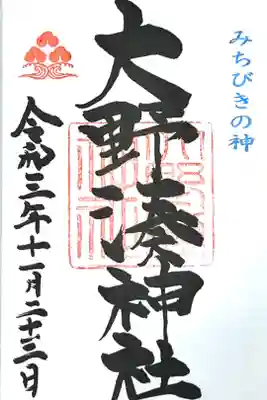 みちびきの神
大野湊神社
令和三年十一月二十三日